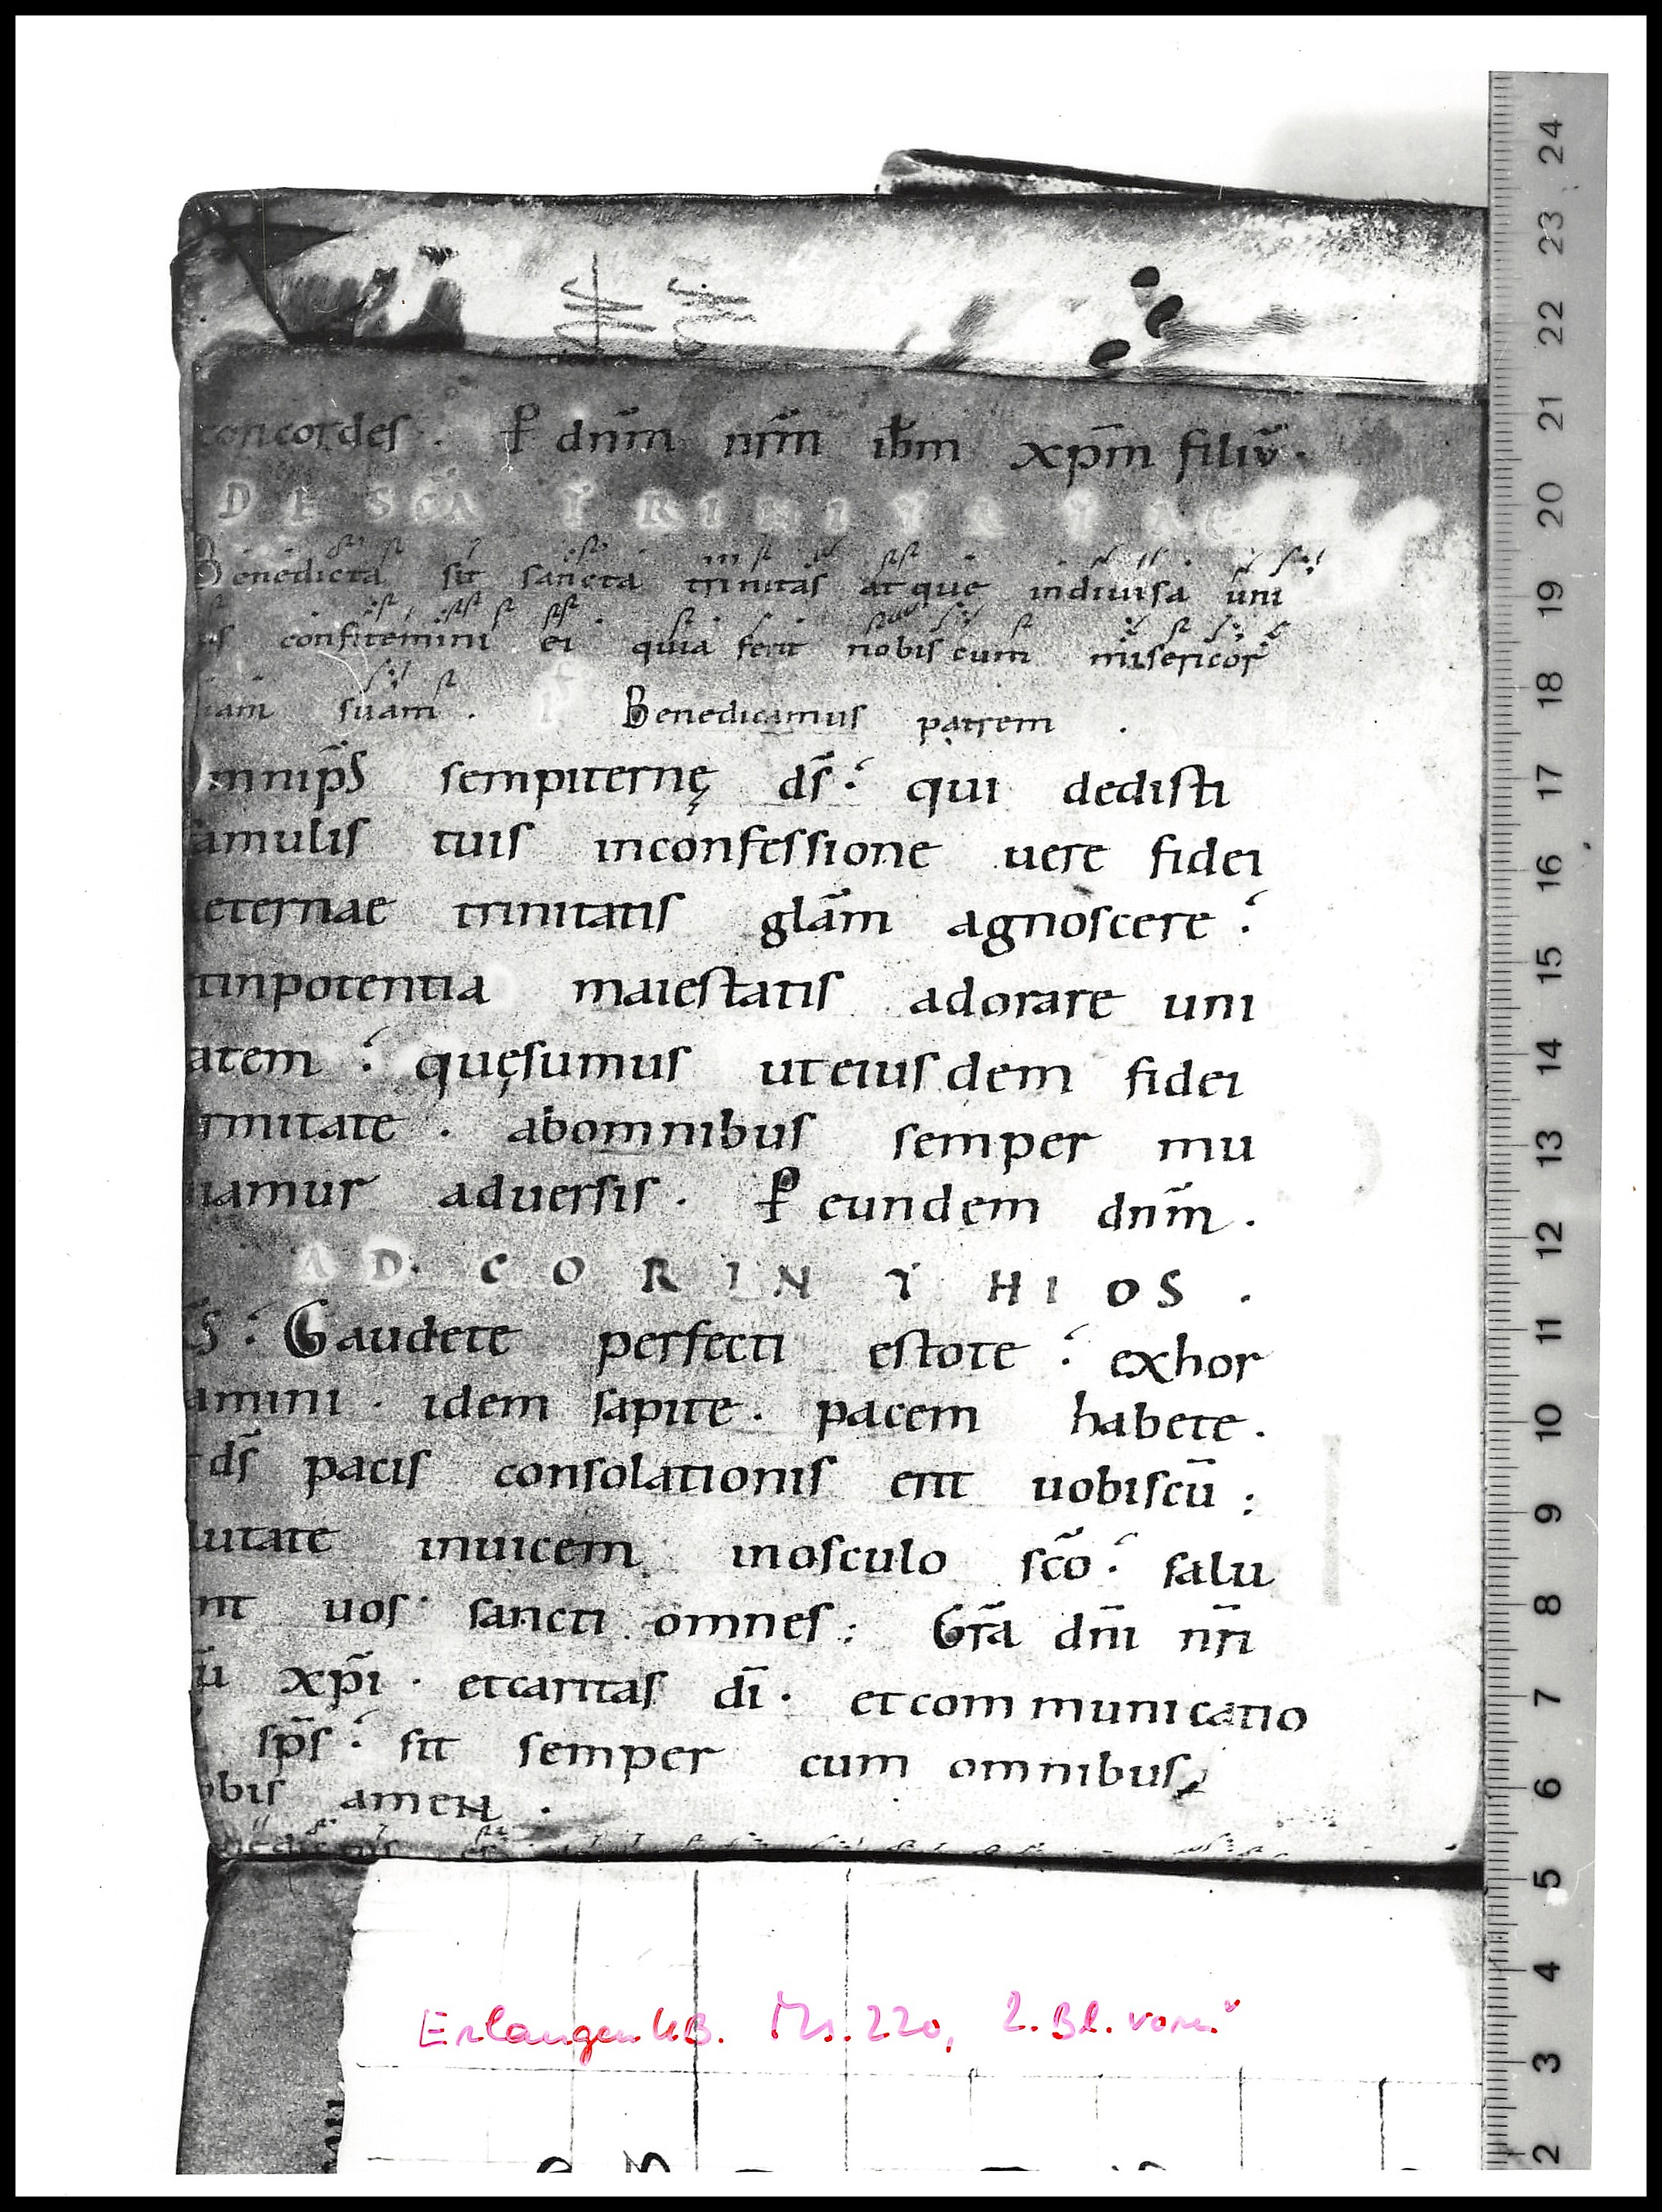 concordes. P dnm nrm ihm xpm filiu.
DE SCA TRINITATAE
Benedicta sit sancta trinitas atque indiuisa uni
as confitemini ei quia fecit nobiscum misericor
iam suam. Ps Benedicamus patrem.
Omnips sempiternę ds: qui dedisti
famulis tuis inconfessione uere fidei
eternae trinitatis glam agnoscere:
tinpotentia maiestatis adorare uni
atem: quęsumus uteiusdem fidei
rmitate. abomnibus semper mu
niamur aduersis. P eundem dnm.
AD CORINTHIOS.
S: Gaudete perfecti estote: exhor
amini. idem sapite. pacem habete.
ds pacis consolationis erit uobiscu:
lutate inuicem inosculo sco: salu
nt uos sancti omnes: Gra dni nri
u xpi. etcaritas di. etcommunicatio
sps: sit semper cum omnibus
obis amen.
Erlangen UB. Ms. 220, 2. Bl. vorn
24
23
22
21
20
19
18
17
16
15
14
13
12
11
10
9
8
7
6
5
4
3
2